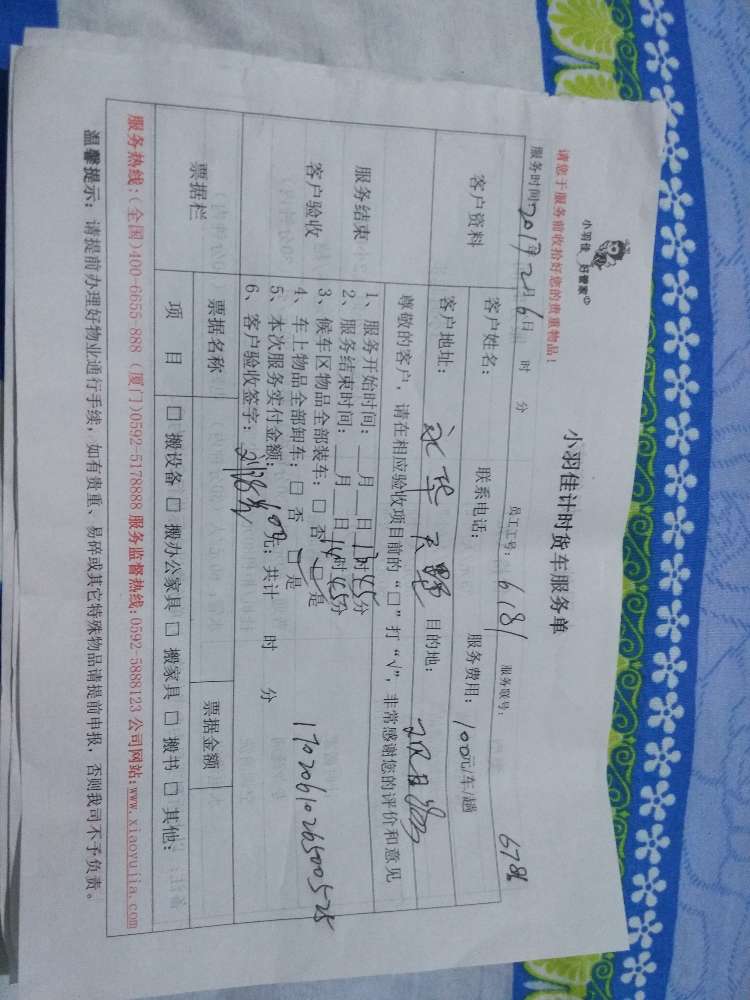 小羽佳 好管家
请您于服务前收拾好您的贵重物品!
小羽佳计时货车服务单
服务时间:2017年2月6日 时 分 员工工号: 6181 服务联号: 6786
客户资料
客户姓名: 联系电话: 服务费用: 100元/车/趟
客户地址: 目的地:
尊敬的客户,请在相应验收项目前的“□”打“√”,非常感谢您的评价和意见
服务结束
客户验收
1、服务开始时间: 月 日13时45分
2、服务结束时间: 月 日14时45分
3、候车区物品全部装车:□ 否 □ 是
4、车上物品全部卸车:□ 否 □ 是
5、本次服务实付金额:100元;共计 时 分
6、客户验收签字:
1702061026500525
票据栏
票据名称 票据金额
项 目 □ 搬设备 □ 搬办公家具 □ 搬家具 □ 搬书 □ 其他:
服务热线:(全国)400-6655-888 (厦门)0592-5178888 服务监督热线:0592-5888123 公司网站:www.xiaoyujia.com
温馨提示:请提前办理好物业通行手续,如有贵重、易碎或其它特殊物品请提前申报,否则我司不予负责。